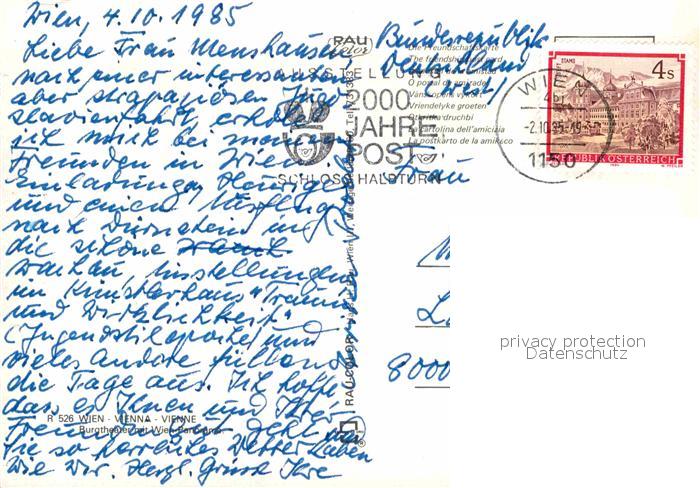 Wien, 4.10.1985
Liebe Frau Menshausen
nach einer interessanten
aber strapaziösen Jugo-
slavienfahrt, erhole
ich mich bei meinen
Freunden in Wien.
Einladung, Heurige
und einen Ausflug
nach Dürnstein in
die schöne
Wachau, Ausstellungen
im Künstlerhaus "Traum
und Wirklichkeit"
(Jugendstilepoche) und
vieles Andere füllen
die Tage aus. Ich hoffe
dass es Ihnen und Ihrer
gut geht
Sie so herrliches Wetter haben
wie wir. Herzl. Gruss Ihre
R 526 WIEN - VIENNA - VIENNE
Burgtheater mit Wien-Panorama
RAU
Color
Die Freundschaftskarte
The friendship card
O postal da amizade
Vriendelijke groeten
La cartolina dell'amicizia
La postkarto de la amikeco
AUSSTELLUNG
2000
JAHRE
POST
SCHLOSS HALBTURN
WIEN
-2.10.85-19
1150
STAMS
4s
REPUBLIK ÖSTERREICH
Bundesrepublik
Deutschland
Frau
8000
privacy protection
Datenschutz